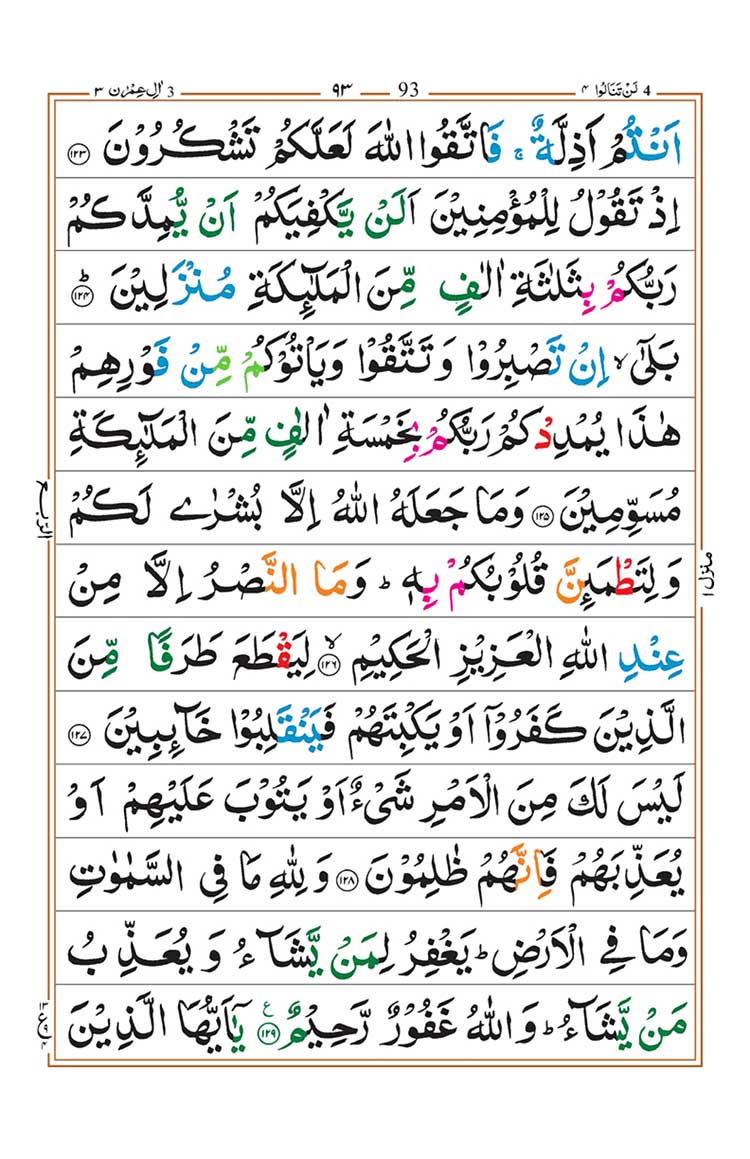 4 لَنْ تَنَالُوا ٤ 93 ٩٣ 3 اٰلِ عِمْرٰن ٣
اَنْتُمْ اَذِلَّةٌ ۚ فَاتَّقُوا اللّٰهَ لَعَلَّكُمْ تَشْكُرُوْنَ ﴿۱۲۳﴾
اِذْ تَقُوْلُ لِلْمُؤْمِنِيْنَ اَلَنْ يَّكْفِيَكُمْ اَنْ يُّمِدَّكُمْ
رَبُّكُمْ بِثَلٰثَةِ اٰلٰفٍ مِّنَ الْمَلٰٓئِكَةِ مُنْزَلِيْنَ ؕ﴿۱۲۴﴾
بَلٰٓى ۙ اِنْ تَصْبِرُوْا وَتَتَّقُوْا وَيَاْتُوْكُمْ مِّنْ فَوْرِهِمْ
هٰذَا يُمْدِدْكُمْ رَبُّكُمْ بِخَمْسَةِ اٰلٰفٍ مِّنَ الْمَلٰٓئِكَةِ
مُسَوِّمِيْنَ ﴿۱۲۵﴾ وَمَا جَعَلَهُ اللّٰهُ اِلَّا بُشْرٰى لَكُمْ
وَلِتَطْمَئِنَّ قُلُوْبُكُمْ بِهٖ ؕ وَمَا النَّصْرُ اِلَّا مِنْ
عِنْدِ اللّٰهِ الْعَزِيْزِ الْحَكِيْمِ ۙ﴿۱۲۶﴾ لِيَقْطَعَ طَرَفًا مِّنَ
الَّذِيْنَ كَفَرُوْۤا اَوْ يَكْبِتَهُمْ فَيَنْقَلِبُوْا خَآئِبِيْنَ ﴿۱۲۷﴾
لَيْسَ لَكَ مِنَ الْاَمْرِ شَىْءٌ اَوْ يَتُوْبَ عَلَيْهِمْ اَوْ
يُعَذِّبَهُمْ فَاِنَّهُمْ ظٰلِمُوْنَ ﴿۱۲۸﴾ وَلِلّٰهِ مَا فِى السَّمٰوٰتِ
وَمَا فِى الْاَرْضِ ؕ يَغْفِرُ لِمَنْ يَّشَآءُ وَيُعَذِّبُ
مَنْ يَّشَآءُ ؕ وَاللّٰهُ غَفُوْرٌ رَّحِيْمٌ ﴿۱۲۹﴾ ع يٰۤاَيُّهَا الَّذِيْنَ
الرّبع
منزل ۱
۱۳
ع ۹
۴